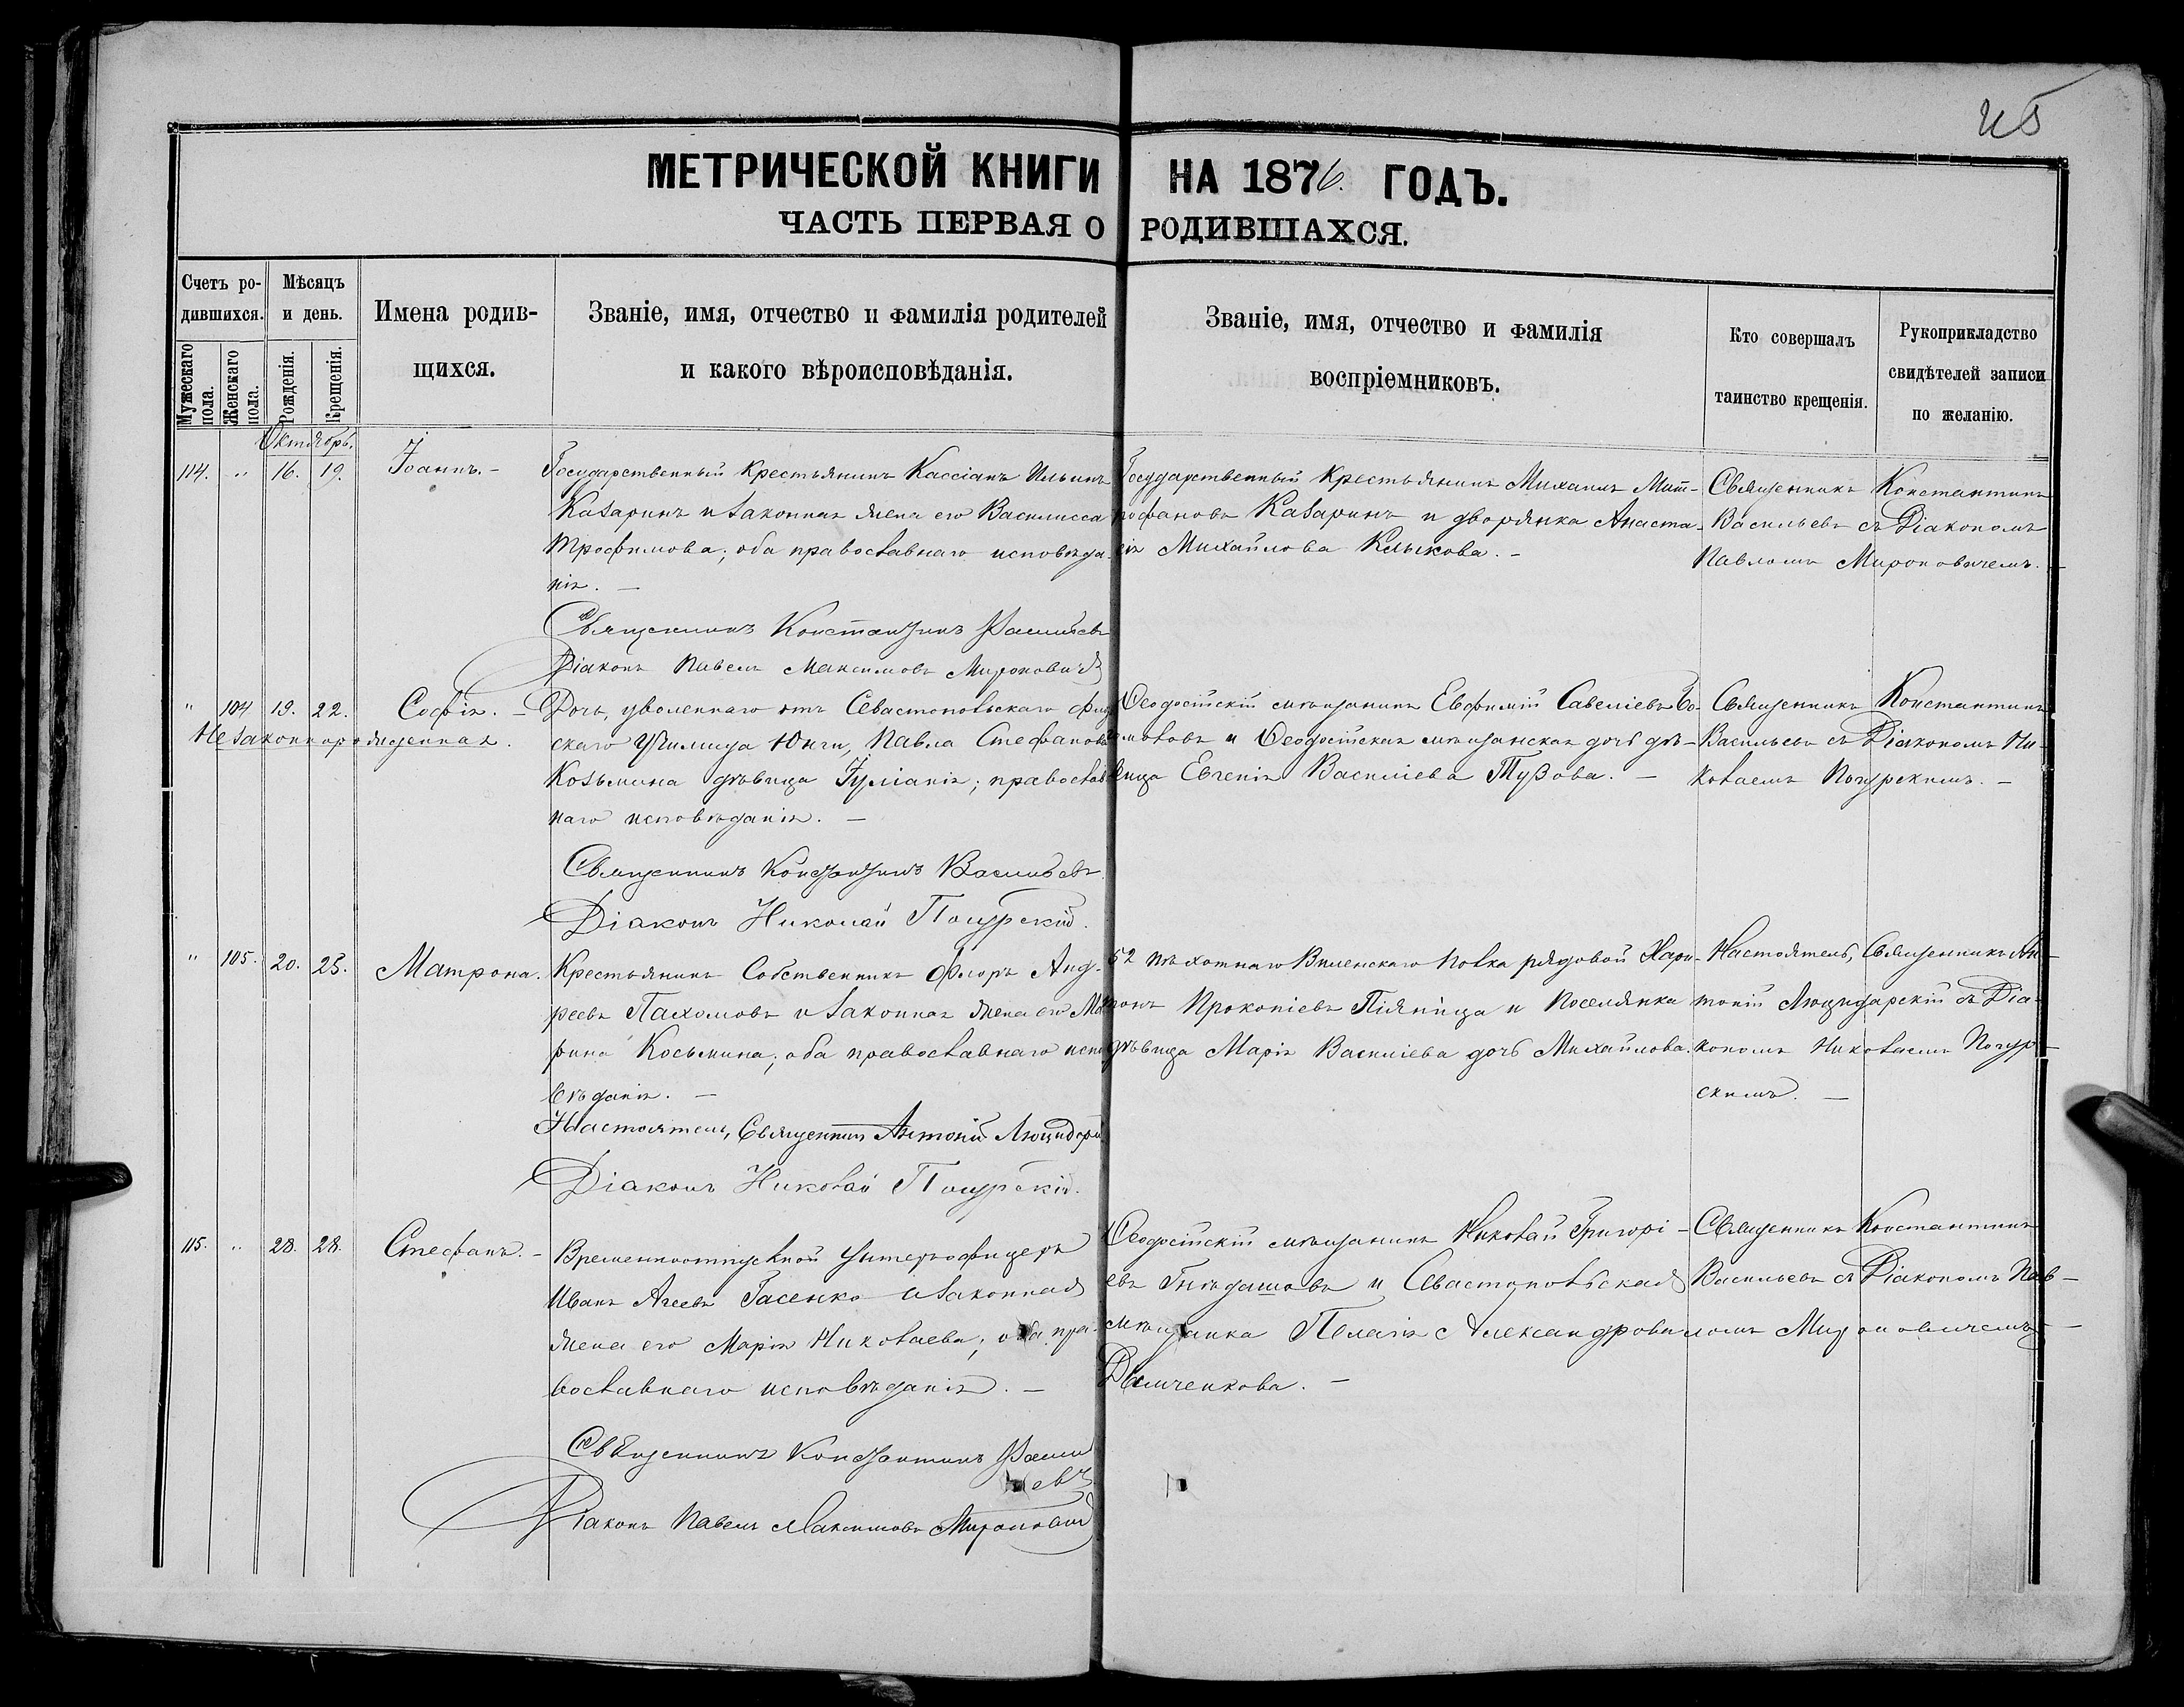 МЕТРИЧЕСКОЙ КНИГИ НА 1876. ГОДЪ.
ЧАСТЬ ПЕРВАЯ О РОДИВШАХСЯ.
Счетъ ро-
дившихся.
Мужескаго пола.
Женскаго пола.
Мѣсяцъ
и день.
Рожденія.
Крещенія.
Имена родив-
шихся.
Званіе, имя, отчество и фамилія родителей
и какого вѣроисповѣданія.
Званіе, имя, отчество и фамилія
воспріемниковъ.
Кто совершалъ
таинство крещенія.
Рукоприкладство
свидѣтелей записи
по желанію.
Октябрь.
114. " 16. 19. Іоаннъ. -
Государственный крестьянинъ Кассіанъ Ильинъ
Казаринъ и законная жена его Василисса
Трофимова; оба православнаго исповѣда-
нія. —
Священникъ Константинъ Васильевъ
Діаконъ Павелъ Максимовъ Мироновичъ
Государственный крестьянинъ Михаилъ Мит-
рофановъ Казаринъ и дворянка Анаста-
сія Михайлова Клыкова. -
Священникъ Константинъ
Васильевъ съ Діакономъ
Павломъ Мироновичемъ. —
" 104 19. 22. Софія. -
Незаконнорожденная.
Дочь, уволеннаго отъ Севастопольскаго
скаго училища Юнги, Павла Стефанова
Козьмина дѣвица Іуліанія; православ
наго исповѣданія. —
Священникъ Константинъ Васильевъ
Діаконъ Николай Погурскій.
Ѳеодосійскій мѣщанинъ Евфимій Савеліевъ Бо-
и Ѳеодосійская мѣщанская дочь дѣ-
вица Евгенія Василіева Тузова. —
Священникъ Константинъ
Васильевъ съ Діакономъ Ни-
колаемъ Погурскимъ. —
" 105. 20. 25. Матрона.
Крестьянинъ Собственникъ Флоръ Анд-
реевъ Пахомовъ и законная жена его Ма
рина Косьмина; оба православнаго испо
вѣданія. —
Настоятель, Священникъ Антоній
Діаконъ Николай Погурскій.
52 пѣхотнаго Виленскаго полка рядовой Хари-
тонъ Прокопіевъ Піяница и поселянка
дѣвица Марія Василіева дочь Михайлова.
Настоятель, Священникъ Ан-
тоній Люцидарскій съ Діа-
кономъ Николаемъ Погур-
скимъ. —
115. " 28. 28. Стефанъ. -
Временноотпускной Унтеръ-офицеръ
Иванъ Агеевъ Гасенко и законная
жена его Марія Николаева; оба пра-
вославнаго исповѣданія. —
Священникъ Константинъ Васил
евъ
Діаконъ Павелъ Максимовъ Мироновичъ
Ѳеодосійскій мѣщанинъ Николай Григорі-
евъ Гнѣдашовъ и Севастопольская
мѣщанка Пелагія Александрова
Демченкова. —
Священникъ Константинъ
Васильевъ съ Діакономъ Пав-
ломъ Мироновичемъ —